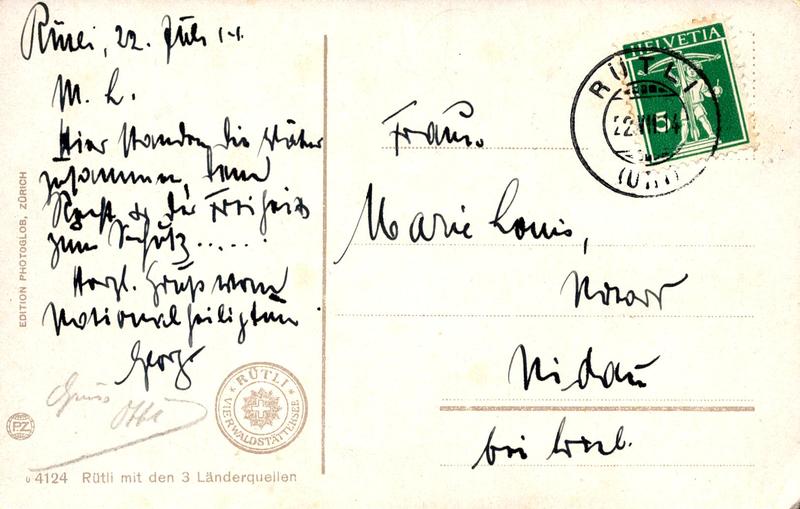 Rütli, 22. Juli 14.
M. L.
Hier standen die Väter
zusammen, dem
Recht & der Freiheit
zum Schutz......
Herzl. Gruß vom
Nationalheiligtum
Georg
Gruss
Otto
Frau.
Marie Louis,
Notars
Nidau
bei Biel.
HELVETIA
5
RÜTLI
22.VII.14
(URI)
EDITION PHOTOGLOB, ZÜRICH
PZ
RÜTLI
VIERWALDSTÄTTERSEE
4124 Rütli mit den 3 Länderquellen